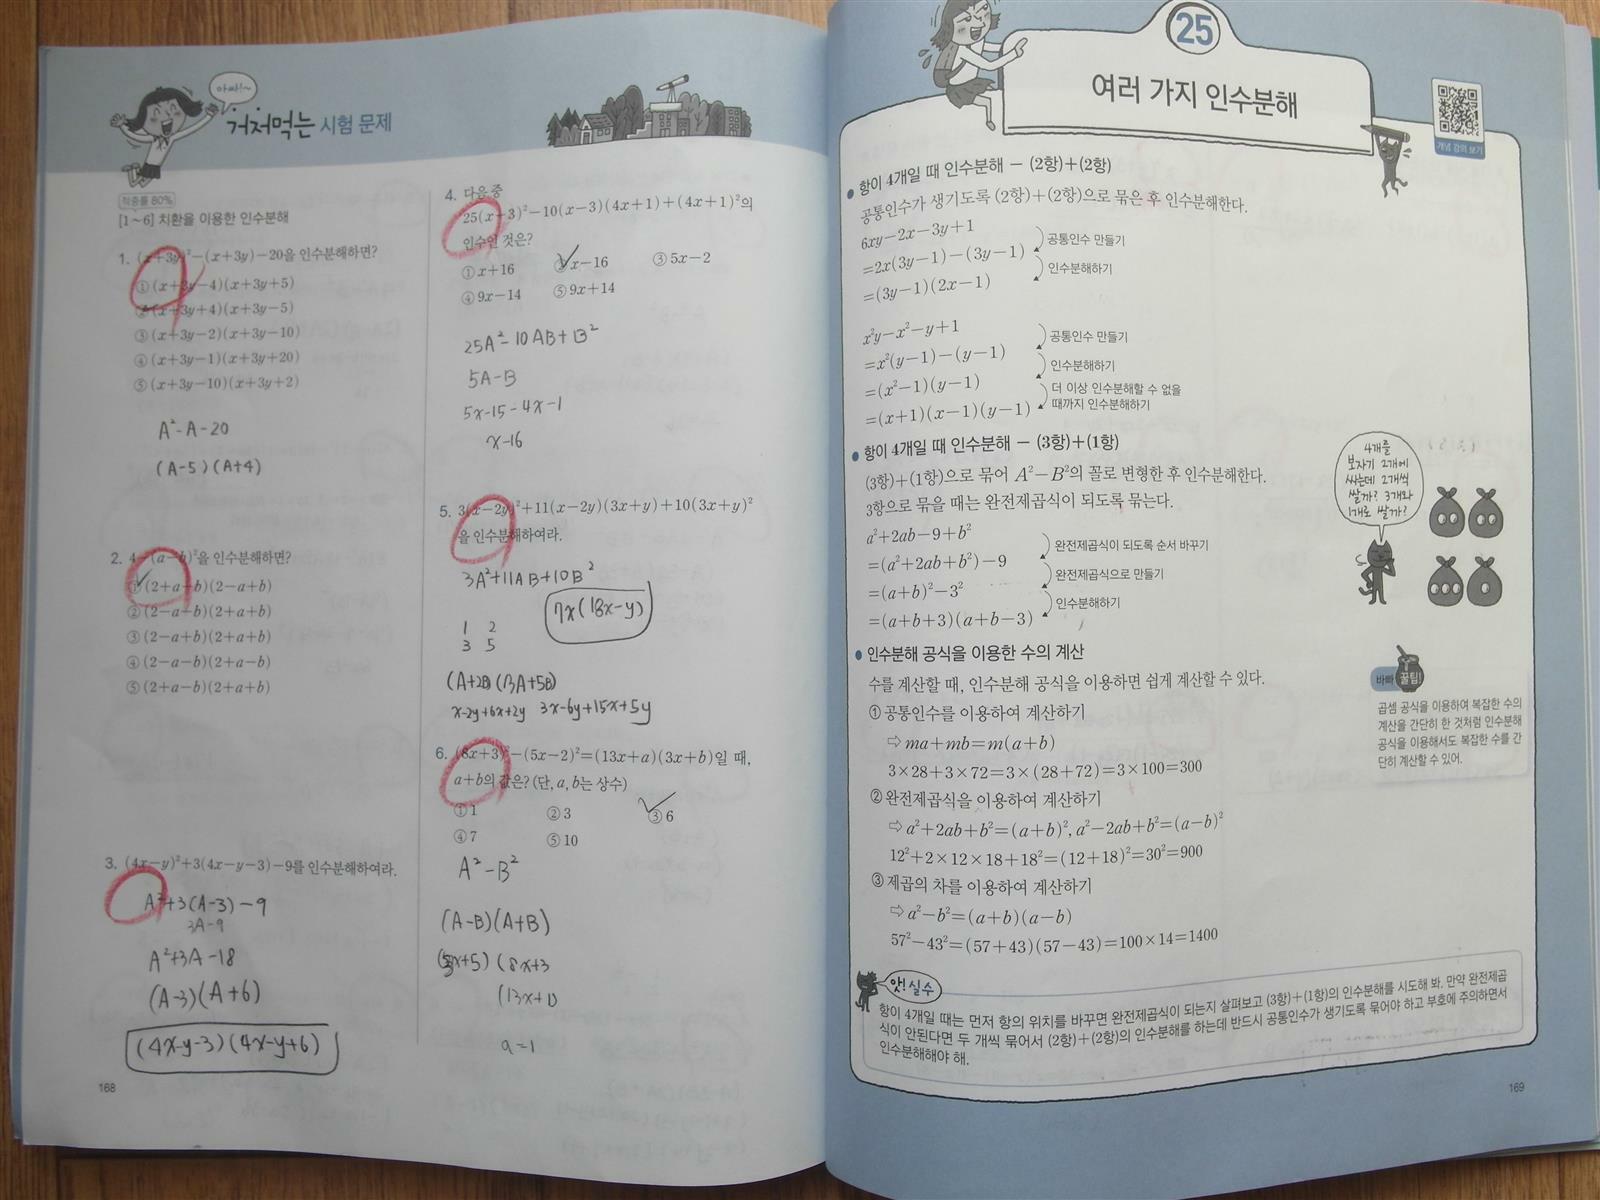 아싸!~
거저먹는 시험 문제
적중률 80%
[1~6] 치환을 이용한 인수분해
1. (x+3y)²-(x+3y)-20을 인수분해하면?
①(x+3y-4)(x+3y+5)
②(x+3y+4)(x+3y-5)
③(x+3y-2)(x+3y-10)
④(x+3y-1)(x+3y+20)
⑤(x+3y-10)(x+3y+2)
A²-A-20
(A-5)(A+4)
2. 4-(a-b)²을 인수분해하면?
①(2+a-b)(2-a+b)
②(2-a-b)(2+a+b)
③(2-a+b)(2+a+b)
④(2-a-b)(2+a-b)
⑤(2+a-b)(2+a+b)
3. (4x-y)²+3(4x-y-3)-9를 인수분해하여라.
A²+3(A-3)-9
3A-9
A²+3A-18
(A-3)(A+6)
(4x-y-3)(4x-y+6)
168
4. 다음 중
25(x-3)²-10(x-3)(4x+1)+(4x+1)²의
인수인 것은?
①x+16 ②x-16 ③5x-2
④9x-14 ⑤9x+14
25A²-10AB+B²
5A-B
5x-15-4x-1
x-16
5. 3(x-2y)²+11(x-2y)(3x+y)+10(3x+y)²
을 인수분해하여라.
3A²+11AB+10B²
7x(18x-y)
1 2
3 5
(A+2B)(3A+5B)
x-2y+6x+2y 3x-6y+15x+5y
6. (8x+3)²-(5x-2)²=(13x+a)(3x+b)일 때,
a+b의 값은? (단, a, b는 상수)
①1 ②3 ③6
④7 ⑤10
A²-B²
(A-B)(A+B)
(3x+5)(8x+3
(13x+1)
a=1
25
여러 가지 인수분해
개념 강의 보기
● 항이 4개일 때 인수분해 - (2항)+(2항)
공통인수가 생기도록 (2항)+(2항)으로 묶은 후 인수분해한다.
6xy-2x-3y+1
=2x(3y-1)-(3y-1) 공통인수 만들기
=(3y-1)(2x-1) 인수분해하기
x²y-x²-y+1
=x²(y-1)-(y-1) 공통인수 만들기
=(x²-1)(y-1) 인수분해하기
=(x+1)(x-1)(y-1) 더 이상 인수분해할 수 없을
때까지 인수분해하기
● 항이 4개일 때 인수분해 - (3항)+(1항)
(3항)+(1항)으로 묶어 A²-B²의 꼴로 변형한 후 인수분해한다.
3항으로 묶을 때는 완전제곱식이 되도록 묶는다.
a²+2ab-9+b²
=(a²+2ab+b²)-9 완전제곱식이 되도록 순서 바꾸기
=(a+b)²-3² 완전제곱식으로 만들기
=(a+b+3)(a+b-3) 인수분해하기
4개를
보자기 2개에
싸는데 2개씩
쌀까? 3개와
1개로 쌀까?
● 인수분해 공식을 이용한 수의 계산
수를 계산할 때, 인수분해 공식을 이용하면 쉽게 계산할 수 있다.
① 공통인수를 이용하여 계산하기
⇨ ma+mb=m(a+b)
3×28+3×72=3×(28+72)=3×100=300
② 완전제곱식을 이용하여 계산하기
⇨ a²+2ab+b²=(a+b)², a²-2ab+b²=(a-b)²
12²+2×12×18+18²=(12+18)²=30²=900
③ 제곱의 차를 이용하여 계산하기
⇨ a²-b²=(a+b)(a-b)
57²-43²=(57+43)(57-43)=100×14=1400
바빠 꿀팁!
곱셈 공식을 이용하여 복잡한 수의
계산을 간단히 한 것처럼 인수분해
공식을 이용해서도 복잡한 수를 간
단히 계산할 수 있어.
앗! 실수
항이 4개일 때는 먼저 항의 위치를 바꾸면 완전제곱식이 되는지 살펴보고 (3항)+(1항)의 인수분해를 시도해 봐. 만약 완전제곱
식이 안된다면 두 개씩 묶어서 (2항)+(2항)의 인수분해를 하는데 반드시 공통인수가 생기도록 묶어야 하고 부호에 주의하면서
인수분해해야 해.
169